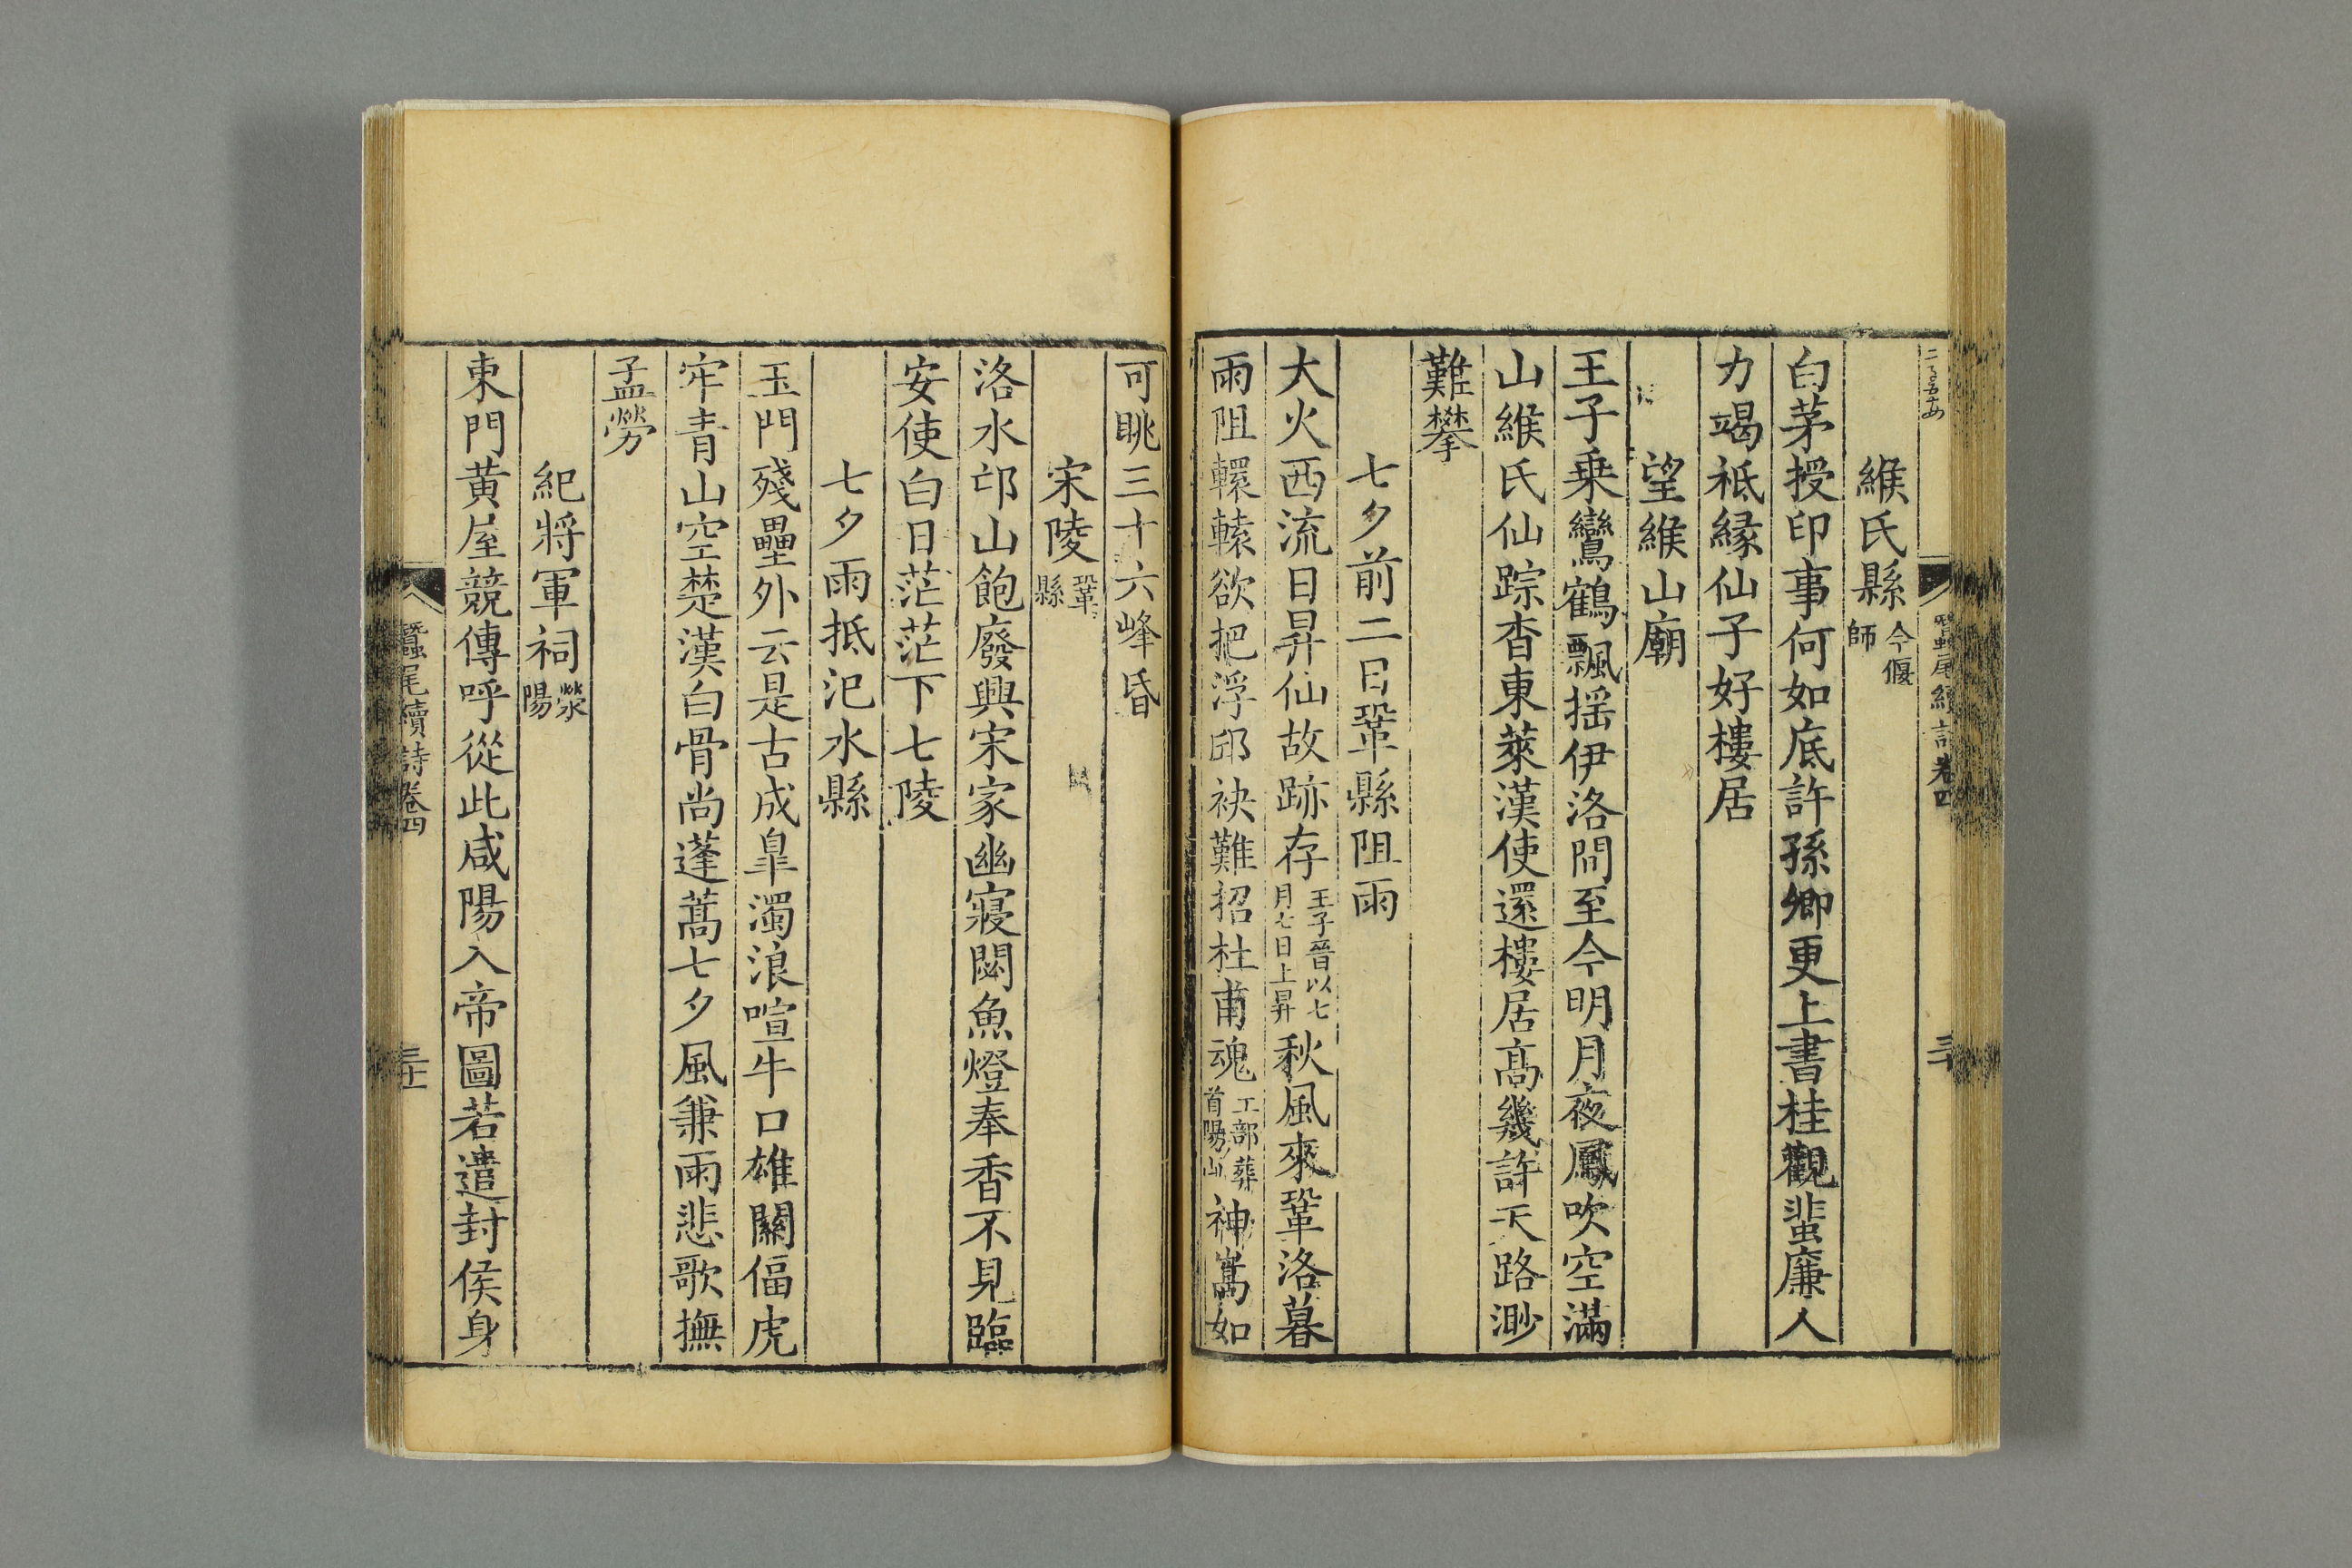 緱氏縣今偃師
白茅授印事何如底許孫卿更上書桂觀蜚廉人
力竭祗緣仙子好樓居
望緱山廟
王子乗鸞鶴飄揺伊洛間至今明月夜鳳吹空滿
山緱氏仙踪杳東萊漢使還樓居高幾許天路渺
難攀
七夕前二日鞏縣阻雨
大火西流日昇仙故跡存王子晉以七月七日上昇秋風來鞏洛暮
雨阻轘轅欲把浮邱袂難招杜甫魂工部葬首陽山神嵩如
可眺三十六峰昏
宋陵鞏縣
洛水邙山飽廢興宋家幽寢閟魚燈奉香不見臨
安使白日茫茫下七陵
七夕雨抵汜水縣
玉門殘壘外云是古成臯濁浪喧牛口雄關偪虎
牢青山空楚漢白骨尚蓬蒿七夕風兼雨悲歌撫
孟勞
紀將軍祠滎陽
東門黄屋競傳呼從此咸陽入帝圖若遣封侯身
蠶尾續詩卷四